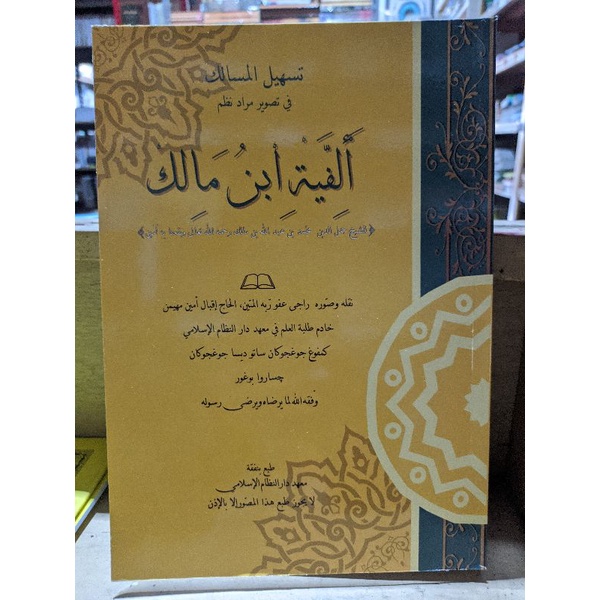 تسهيل المسالك
في تصوير مراد نظم
أَلفيَّة اِبنُ مَالِك
﴿للشيخ جمال الدين محمد بن عبد الله بن مالك رحمه الله تعالى ونفعنا به آمين﴾
نقله وصوّره راجى عفو ربه المتين، الحاج إقبال أمين مهيمن
خادم طلبة العلم في معهد دار النظام الإسلامي
كمفوغ جوغجوكان ساتو ديسا جوغجوكان
چساروا بوغور
وفّقه الله لما يرضاه ويرضى رسوله
طبع بنفقة
معهد دار النظام الإسلامي
لا يجوز طبع هذا المصوّر إلا بالإذن